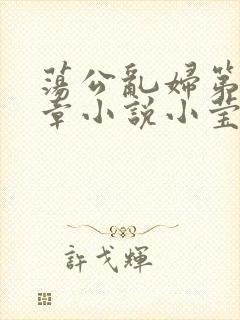 蕩公亂婦第
章小説小莹
許戈輝